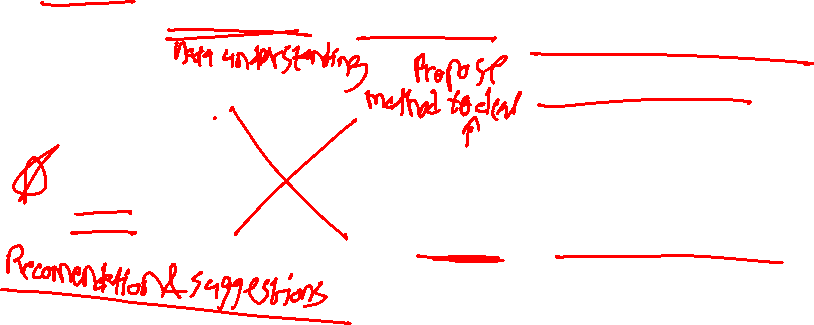 Data understanding
Propose
method to deal
Ø
Recomendation & suggestions